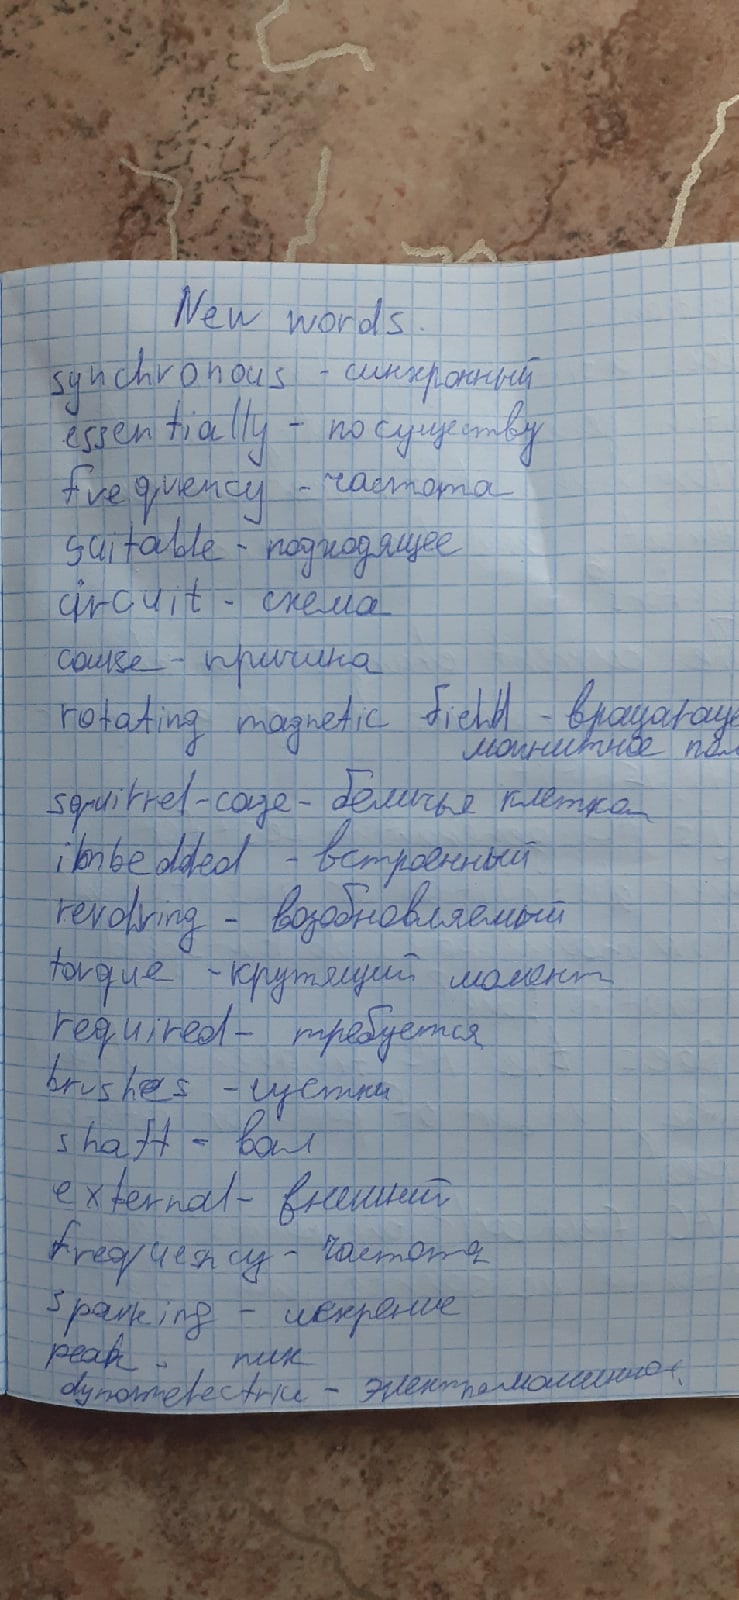 New words.
synchronous - синхронный
essentially - по существу
frequency - частота
suitable - подходящее
circuit - схема
cause - причина
rotating magnetic field - вращающе
магнитное пол
squirrel-cage - беличья клетка
imbedded - встроенный
revolving - возобновляемый
torque - крутящий момент
required - требуется
brushes - щетки
shaft - вал
external - внешний
frequency - частота
sparking - искрение
peak - пик
dynamelectric - электромашинная.